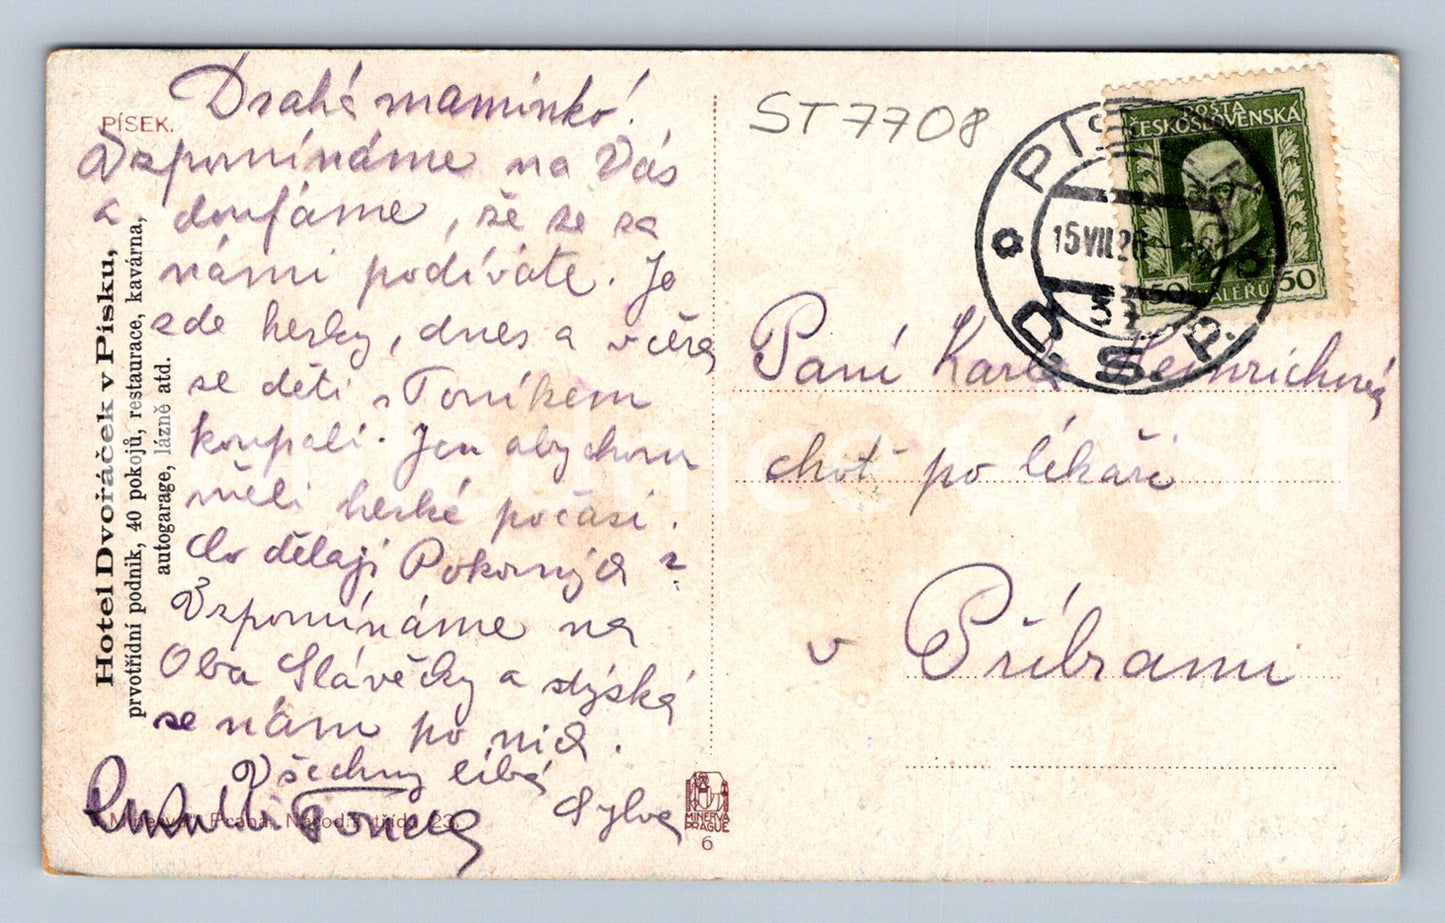 PÍSEK.
Drahá maminko!
Vzpomínáme na Vás
a doufáme, že se za
námi podíváte. Je
zde hezky, dnes a včera
se děti s Toníkem
koupali. Jen abychom
měli hezké počasí.
Co dělají Pokorných?
Vzpomínáme na
Oba Slávečky a stýská
se nám po nich.
Všechny líbá
Sylva
Hotel Dvořáček v Písku,
prvotřídní podnik, 40 pokojů, restaurace, kavárna,
autogarage, lázně atd.
Minerva, Praha, Národní třída 23.
MINERVA
PRAGUE
6
ST7708
POŠTA
ČESKOSLOVENSKÁ
50 HALÉŘŮ 50
PÍSEK
15 VII 26
Paní Karla Heinrichová
choť po lékaři
v Příbrami
Sběratelnice CASH